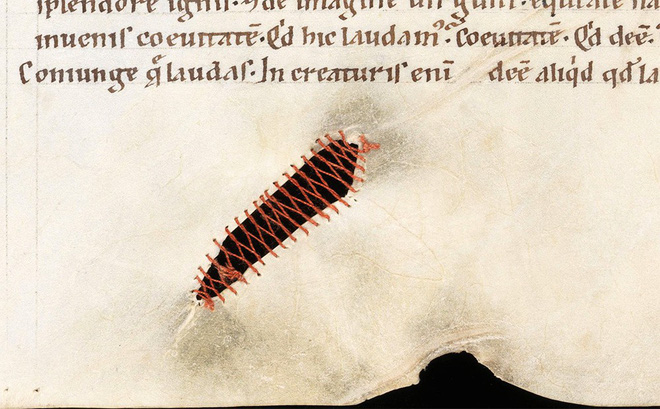 splendore ignis. & de imagine un
inuenis coeuitatē. Qd hic laudam᷒. Coeuitatē. Qd deē.
Coniunge q̊ laudas. In creaturis enī deē aliq̇d qd̓ la